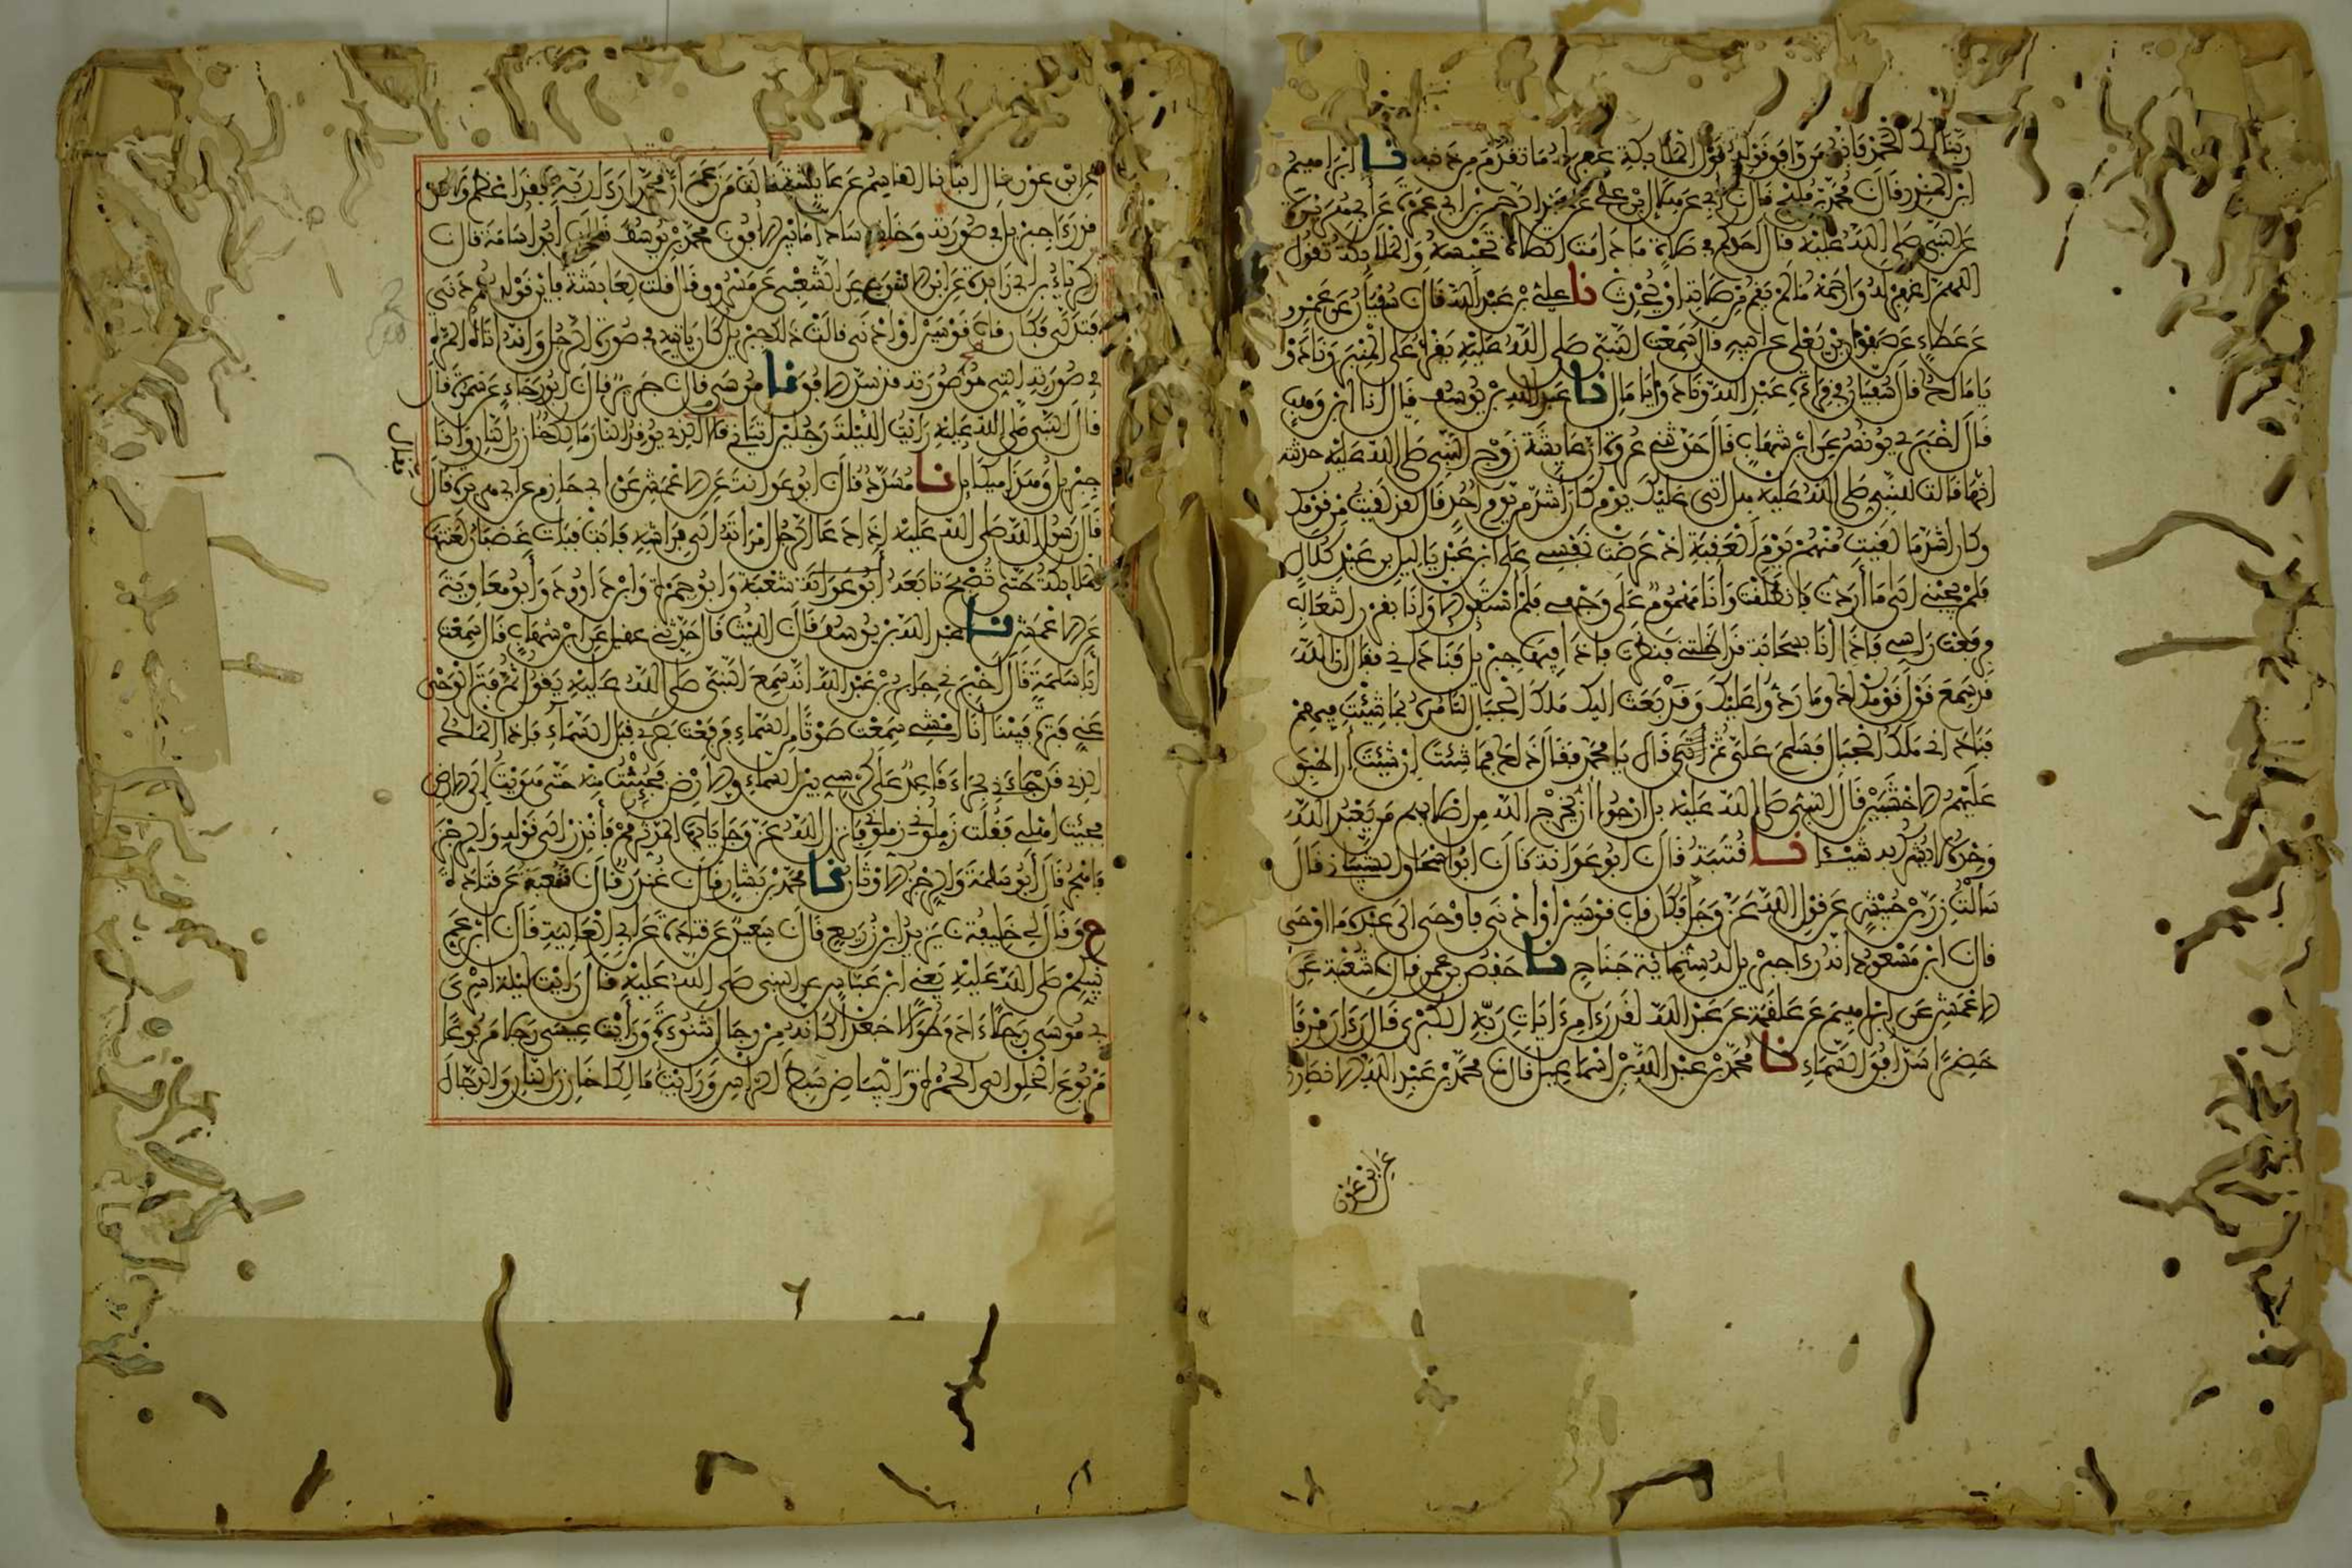 ربنا لك الحمد فإنه من وافق قوله قول الملائكة غفر له ما تقدم من ذنبه نا إبراهيم
ابن المنذر قال محمد بن فليح قال أبي عن هلال بن علي عن عبد الرحمن بن أبي عمرة عن أبي هريرة
عن النبي صلى الله عليه قال أحدكم في صلاة ما دامت الصلاة تحبسه والملائكة تقول
اللهم اغفر له وارحمه ما لم يقم من صلاته أو يحدث نا علي بن عبد الله قال سفيان عن عمرو
عن عطاء عن صفوان بن يعلى عن أبيه قال سمعت النبي صلى الله عليه يقرأ على المنبر ونادوا
يا مالك قال سفيان في قراءة عبد الله ونادوا يا مال نا عبد الله بن يوسف قال انا ابن وهب
قال أخبرني يونس عن ابن شهاب قال حدثني عروة أن عايشة زوج النبي صلى الله عليه حدثته
أنها قالت للنبي صلى الله عليه هل أتى عليك يوم كان أشد من يوم أحد قال لقد لقيت من قومك
وكان أشد ما لقيت منهم يوم العقبة إذ عرضت نفسي على ابن عبد ياليل بن عبد كلال
فلم يجبني إلى ما أردت فانطلقت وأنا مهموم على وجهي فلم أستفق إلا وأنا بقرن الثعالب
فرفعت رأسي فإذا أنا بسحابة قد أظلتني فنظرت فإذا فيها جبريل فناداني فقال إن الله
قد سمع قول قومك لك وما ردوا عليك وقد بعث إليك ملك الجبال لتأمره بما شئت فيهم
فناداني ملك الجبال فسلم علي ثم قال يا محمد فقال ذلك فما شئت إن شئت أن أطبق
عليهم الأخشبين قال النبي صلى الله عليه بل أرجوا أن يخرج الله من أصلابهم من يعبد الله
وحده لا يشرك به شيئا نا قتيبة قال أبو عوانة قال أبو إسحاق الشيباني قال
سألت زر بن حبيش عن قول الله عز وجل فكان قاب قوسين أو أدنى فأوحى إلى عبده ما أوحى
قال ابن مسعود أنه رءا جبريل له ستماية جناح نا حفص بن عمر قال شعبة عن
الأعمش عن إبراهيم عن علقمة عن عبد الله لقد رءا من ءايات ربه الكبرى قال رءا رفرفا
خضرا سد أفق السماء نا محمد بن عبد الله بن إسماعيل قال محمد بن عبد الله الأنصاري
عن ابن عون
عن ابن عون قال انبانا القاسم عن عايشة قالت من زعم أن محمدا رءا ربه فقد أعظم ولكن
قد رءا جبريل في صورته وخلقه سادا ما بين الأفق محمد بن يوسف قال أبو أسامة قال
زكرياء بن أبي زايدة عن ابن الأشوع عن الشعبي عن مسروق قال قلت لعايشة فأين قوله ثم دنى
فتدلى فكان قاب قوسين أو أدنى قالت ذلك جبريل كان ياتيه في صورة الرجل وإنه أتاه المرة
في صورته التي هو صورته فسد الأفق نا موسى قال جرير قال أبو رجاء عن سمرة قال
قال النبي صلى الله عليه رأيت الليلة رجلين أتياني فقالا الذي يوقد النار مالك خازن النار وأنا
جبريل وهذا ميكايل نا مسدد قال أبو عوانة عن الأعمش عن أبي حازم عن أبي هريرة قال
قال رسول الله صلى الله عليه إذا دعا الرجل امرأته إلى فراشه فأبت فبات غضبان لعنتها
الملائكة حتى تصبح تابعه أبو عوانة شعبة وأبو حمزة وابن داوود وأبو معاوية
عن الأعمش نا عبد الله بن يوسف قال الليث قال حدثني عقيل عن ابن شهاب قال سمعت
أبا سلمة قال أخبرني جابر بن عبد الله أنه سمع النبي صلى الله عليه يقول ثم فتر الوحي
عني فترة فبينا أنا أمشي سمعت صوتا من السماء فرفعت بصري قبل السماء فإذا الملك
الذي قد جاءني بحراء قاعد على كرسي بين السماء والأرض فجئثت منه حتى هويت إلى الأرض
فجئت أهلي فقلت زملوني زملوني فأنزل الله عز وجل يا أيها المدثر قم فأنذر إلى قوله والرجز
فاهجر قال أبو سلمة والرجز الأوثان نا محمد بن بشار قال غندر قال شعبة عن قتادة
ح وقال لي خليفة نا يزيد بن زريع قال سعيد عن قتادة عن أبي العالية قال ابن عم
نبيكم صلى الله عليه يعني ابن عباس عن النبي صلى الله عليه قال رأيت ليلة أسري
بي موسى رجلا ءادم طوالا جعدا كأنه من رجال شنوءة ورأيت عيسى رجلا مربوعا
مربوع الخلق إلى الحمرة والبياض سبط الرأس ورأيت مالكا خازن النار والدجال
فقال